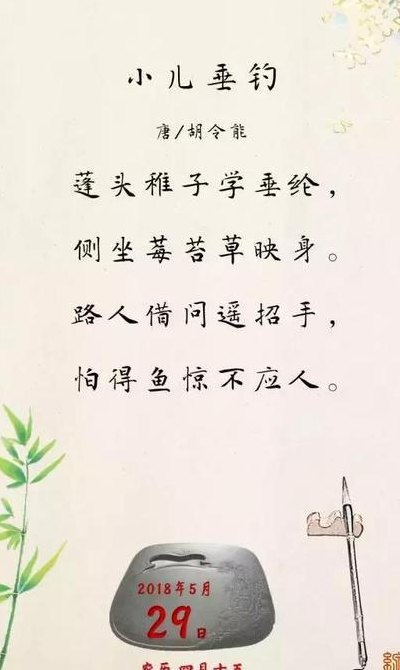 小儿垂钓
唐/胡令能
蓬头稚子学垂纶，
侧坐莓苔草映身。
路人借问遥招手，
怕得鱼惊不应人。
2018年5月
29日
农历 四月十五